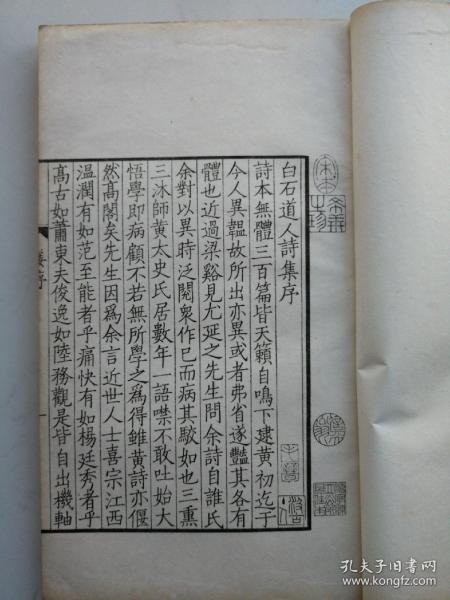 白石道人詩集序
詩本無體三百篇皆天籟自鳴下逮黃初迄于
今人異韞故所出亦異或者弗省遂豔其各有
體也近過梁谿見尤延之先生問余詩自誰氏
余對以異時泛閱衆作已而病其駁如也三熏
三沐師黃太史氏居數年一語噤不敢吐始大
悟學即病顧不若無所學之爲得雖黃詩亦偃
然高閣矣先生因爲余言近世人士喜宗江西
溫潤有如范至能者乎痛快有如楊廷秀者乎
高古如蕭東夫俊逸如陸務觀是皆自出機軸
孔夫子旧书网
book.kongfz.com